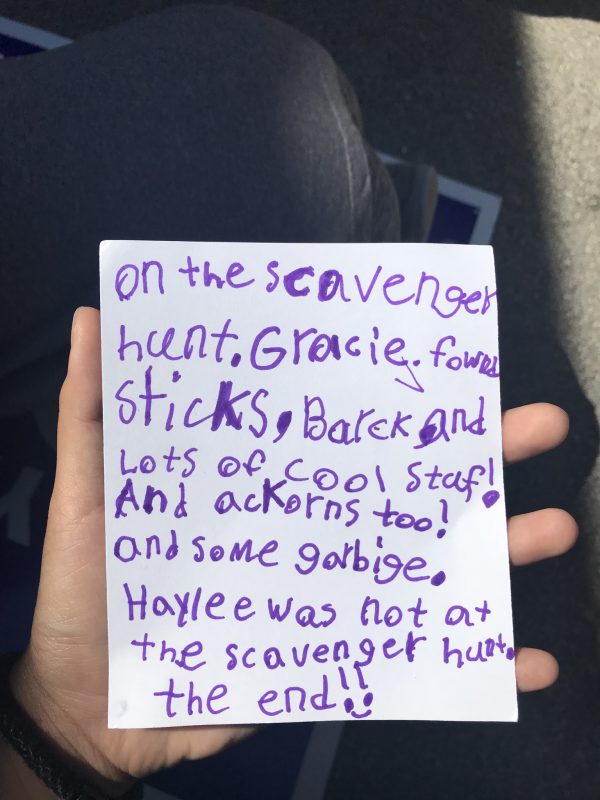 on the scavenger
hunt. Gracie. fownd
sticks, Barck, and
Lots of cool staf!
And ackorns too!
and some garbige.
Haylee was not at
the scavenger hunt.
the end!!